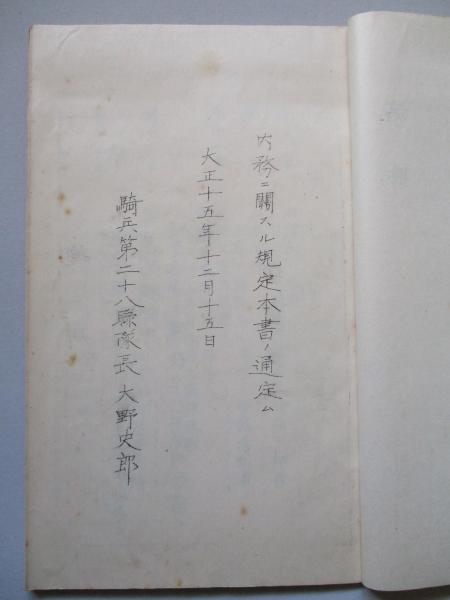 内務ニ關スル規定本書ノ通定ム
大正十五年十二月十五日
騎兵第二十八聯隊長 大野史郎